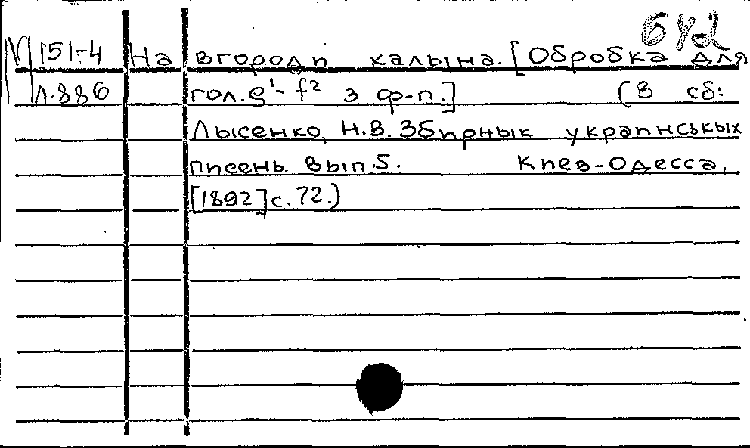 642
М 151-4 На вгороди калына. [Обробка для
Л.886 гол. e¹- f² з ф-п.] (В сб:
Лысенко, Н.В. Збирнык украинськых
писень. Вып.5. Киев-Одесса,
[1892] с.72.)